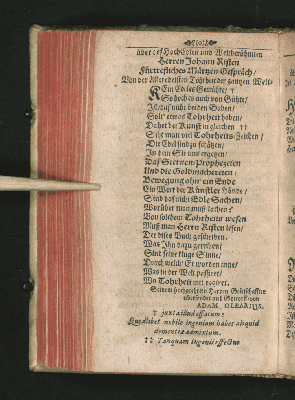 über des HochEdlen und Weltberühmten
Herren Johann Risten
Fürtrefliches Märtzen-Gespräch/
Von der Alleredelsten Tohrheit der gantzen Welt.
Ein Edles Gemühte/ †
So hoch es auch von Gühte/
Ist das nicht bei den Gaben/
Solt' etwas Tohrheit haben/
Da her der Kunst in gleichen ††
Siht man viel Tohrheits-Zeichen/
Die Edel sind zu schätzen/
In dem Sie uns ergetzen
Das Sternen-Prophezeien
Und die Goldmachereien
Bewegung ohn' ein Ende
Ein Wert der Künstler Hände/
Sind das nicht Edle Sachen/
Worüber man muß lachen?
Von solchem Tohrheits wesen
Muß man Herrn Risten lesen/
Der dises Buch geschriben.
Was Ihn dazu getriben/
Sind seine kluge Sinne/
Durch welch' Er worden inne/
Was in der Welt passiret/
Wo Tohrheit mit regiret.
Seinem hochgeehrten Herren Gesellschafter
übersendet aus Gottorf von
ADAM OLEARIUS.
† juxta illud effatum:
Quodlibet nobile ingenium habet aliquid
dementiæ admixtum.
†† Tanquam ingenii effectus